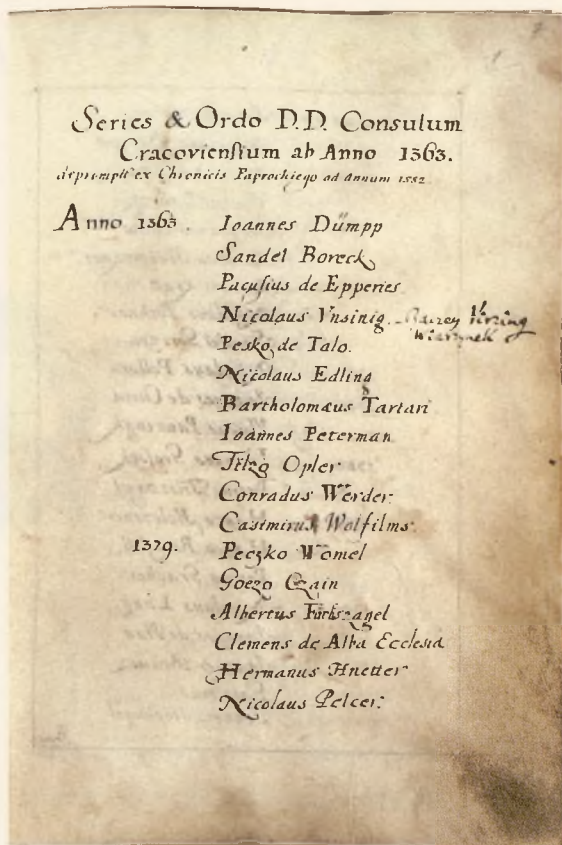 Series & Ordo D.D. Consulum
Cracoviensium ab Anno 1363.
depromptē ex Chronicis Paprockiego ad Annum 1582
Anno 1363. Ioannes Dümpp
Sandel Boreck
Pacusius de Epperies
Nicolaus Vnsinig.
Wierzynek
Pesko de Talo.
Nicolaus Edling
Bartholomæus Tartari
Ioannes Peterman
Opler
Conradus Werder.
Casimirus Wolfilms.
1379. Peczko Womel
Goezo Czain
Albertus
Clemens de Alba Ecclesia
Hermanus Hnetter
Nicolaus Pelcer.